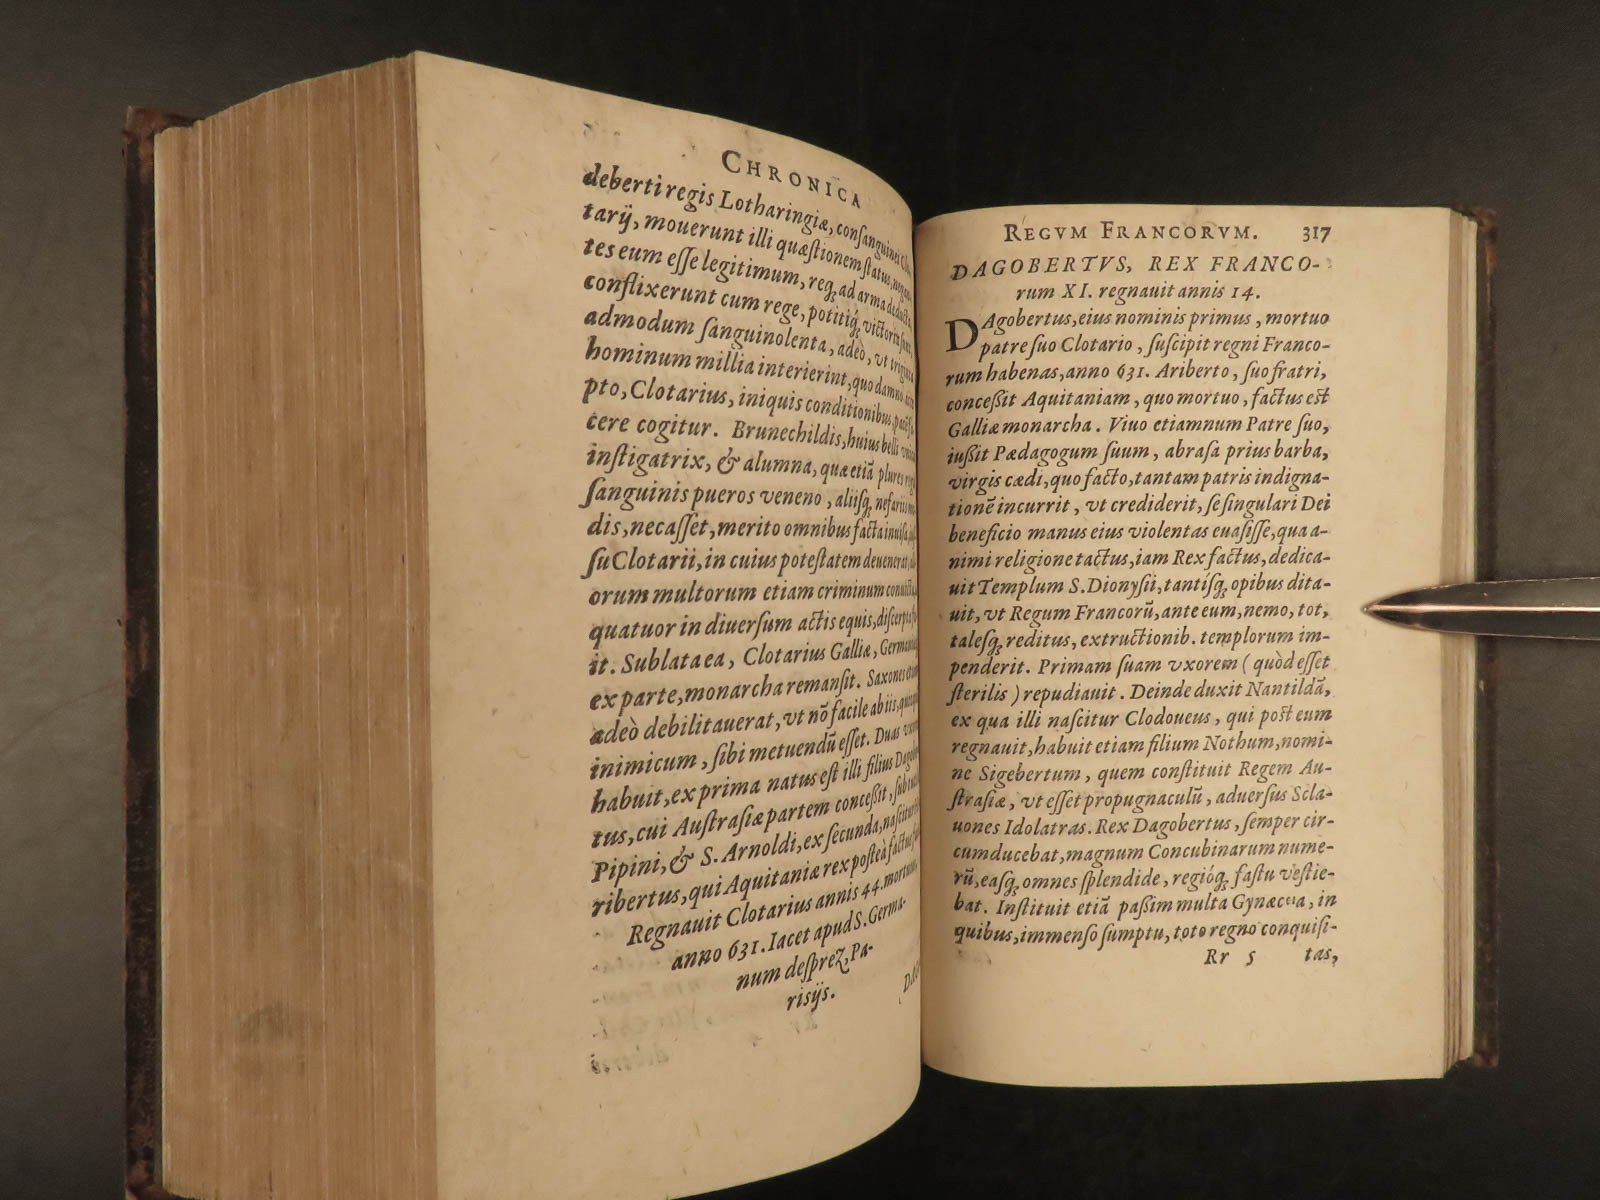 CHRONICA
deberti regis Lotharingiæ, conſanguinei
tarÿ, mouerunt illi quæſtionem ſtatus,
tes eum eſſe legitimum, reqꝫ ad arma deducta,
conflixerunt cum rege, potitiqꝫ victoria ſunt,
admodum ſanguinolenta, adeò, vt triginta
hominum millia interierint, quo damno
pto, Clotarius, iniquis conditionibus,
cere cogitur. Brunechildis, huius belli
inſtigatrix, & alumna, quæ etiā plures
ſanguinis pueros veneno, aliiſqꝫ nefariis
dis, necaſſet, merito omnibus facta inuiſa,
ſu Clotarii, in cuius poteſtatem deuenerat,
orum multorum etiam criminum
quatuor in diuerſum actis equis,
it. Sublata ea, Clotarius Galliæ,
ex parte, monarcha remanſit. Saxones
adeò debilitauerat, vt nō facile ab iis,
inimicum, ſibi metuendū eſſet. Duas
habuit, ex prima natus eſt illi filius
tus, cui Auſtraſiæ partem conceßit,
Pipini, & S. Arnoldi, ex ſecunda,
ribertus, qui Aquitaniæ rex poſteà factus
Regnauit Clotarius annis 44. mortuus
anno 631. Iacet apud S. Germa-
num deſprez, Pa-
risÿs.
REGVM FRANCORVM. 317
DAGOBERTVS, REX FRANCO-
rum XI. regnauit annis 14.
DAgobertus, eius nominis primus, mortuo
patre ſuo Clotario, ſuſcipit regni Franco-
rum habenas, anno 631. Ariberto, ſuo fratri,
conceßit Aquitaniam, quo mortuo, factus eſt
Galliæ monarcha. Viuo etiamnum Patre ſuo,
iußit Pædagogum ſuum, abraſa prius barba,
virgis cædi, quo facto, tantam patris indigna-
tionē incurrit, vt crediderit, ſe ſingulari Dei
beneficio manus eius violentas euaſiſſe, qua a-
nimi religione tactus, iam Rex factus, dedica-
uit Templum S. Dionyſii, tantiſqꝫ opibus dita-
uit, vt Regum Francorū, ante eum, nemo, tot,
taleſqꝫ reditus, extructionib. templorum im-
penderit. Primam ſuam vxorem ( quòd eſſet
ſterilis ) repudiauit. Deinde duxit Nantildā,
ex qua illi naſcitur Clodoueus, qui poſt eum
regnauit, habuit etiam filium Nothum, nomi-
ne Sigebertum, quem conſtituit Regem Au-
ſtraſiæ, vt eſſet propugnaculū, aduerſus Scla-
uones Idolatras. Rex Dagobertus, ſemper cir-
cumducebat, magnum Concubinarum nume-
rū, eaſqꝫ omnes ſplendide, regióqꝫ faſtu veſtie-
bat. Inſtituit etiā paßim multa Gynæcea, in
quibus, immenſo ſumptu, toto regno conquiſi-
Rr 5 tas,